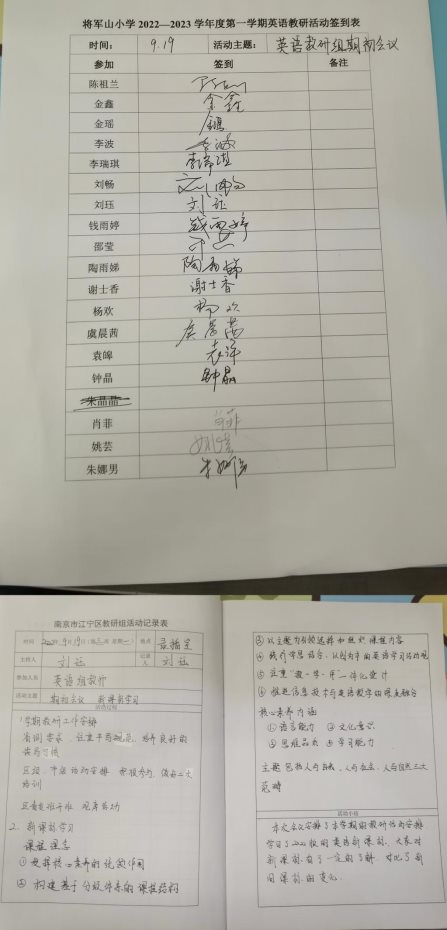 将军山小学 2022—2023 学年度第一学期英语教研活动签到表
时间： 9.19 活动主题： 英语教研组期初会议
参加 签到 备注
陈祖兰
金鑫 金鑫
金瑶
李波 李波
李瑞琪 李瑞琪
刘畅 刘畅
刘珏 刘珏
钱雨婷 钱雨婷
邵莹
陶雨娣 陶雨娣
谢士香 谢士香
杨欢 杨欢
虞晨茜 虞晨茜
袁皞
钟晶 钟晶
朱晶晶
肖菲 肖菲
姚芸 姚芸
朱娜男
南京市江宁区教研组活动记录表
时间 2022年9月19日（第三周 星期一） 地点
主持人 刘珏 记录人 刘珏
参加人员 英语组教师
活动主题 期初会议 新课标学习
活动过程
1. 学期教研工作安排
培训
2. 新课标学习
课程理念
① 发挥核心素养的统领作用
② 构建基于分级体系的课程结构
③ 以主题为引领选择和组织课程内容
④ 践行学思结合、以创为本的英语学习活动观
⑤ 注重“教-学-评”一体化设计
⑥ 推进信息技术与英语教学的深度融合
核心素养内涵
①语言能力 ②文化意识
③思维品质 ④学习能力
主题包括人与自我，人与社会，人与自然三大
范畴
活动小结
本次会议安排了本学期的教研任务安排
学习了2022版的英语新课标，大家对
新课标有了一定的了解，对比了新
旧课标的变化。